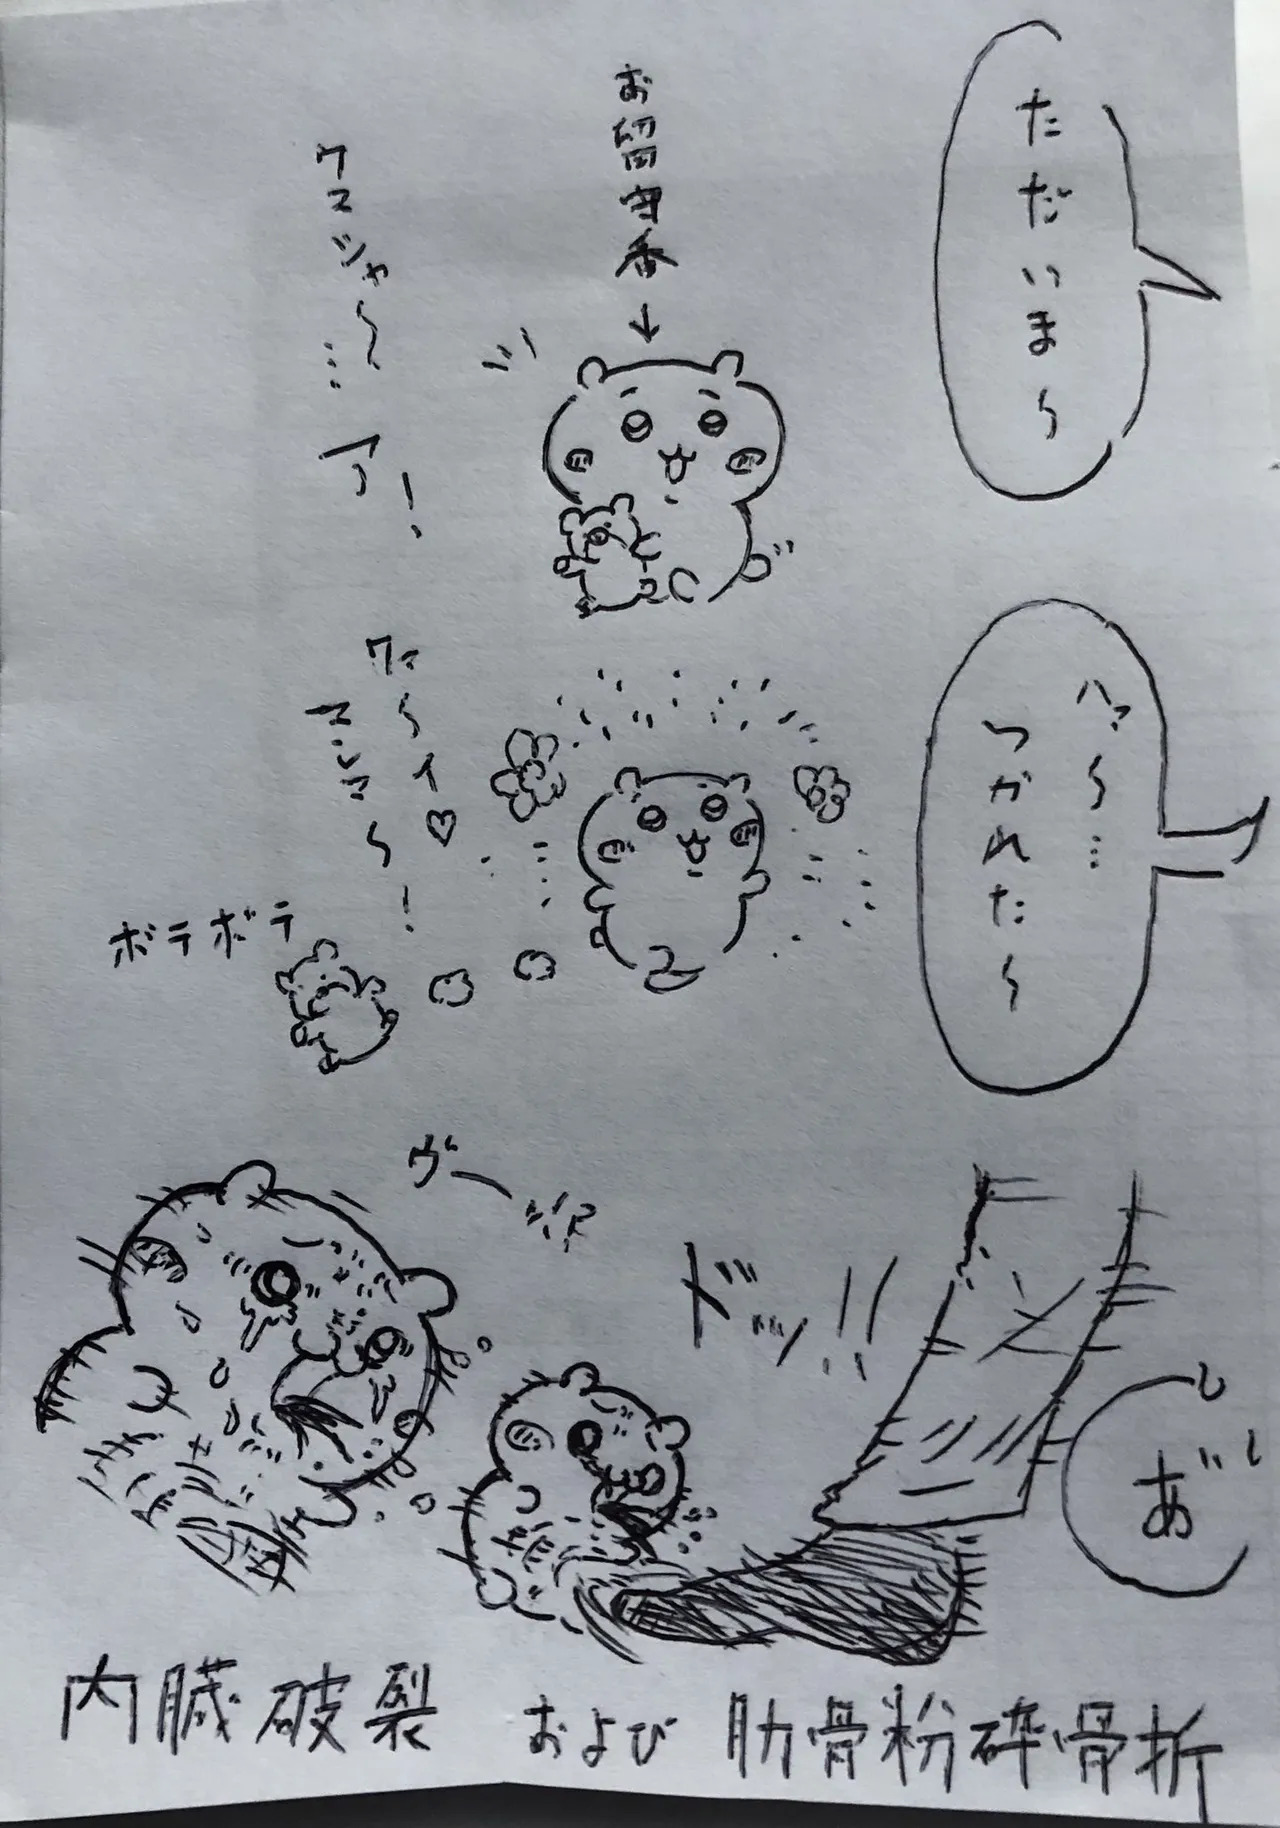 ただいま〜
お留守番
↓
ワスシャ〜…ア!
ハァ〜…
つかれた〜
ワァ〜イ♡
ママァ〜!
ボテボテ
ヴー
ドッ!!
あ゛
内臓破裂 および 肋骨粉砕骨折